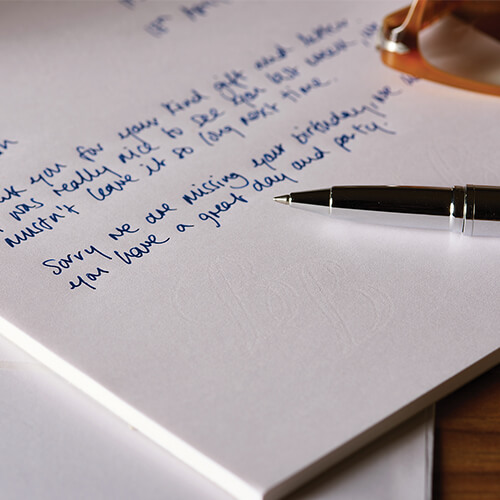 11th April
you for your kind gift and letter
was really nice to see you last week, we
mustn't leave it so long next time.
Sorry we are missing your birthday, we
you have a great day and party